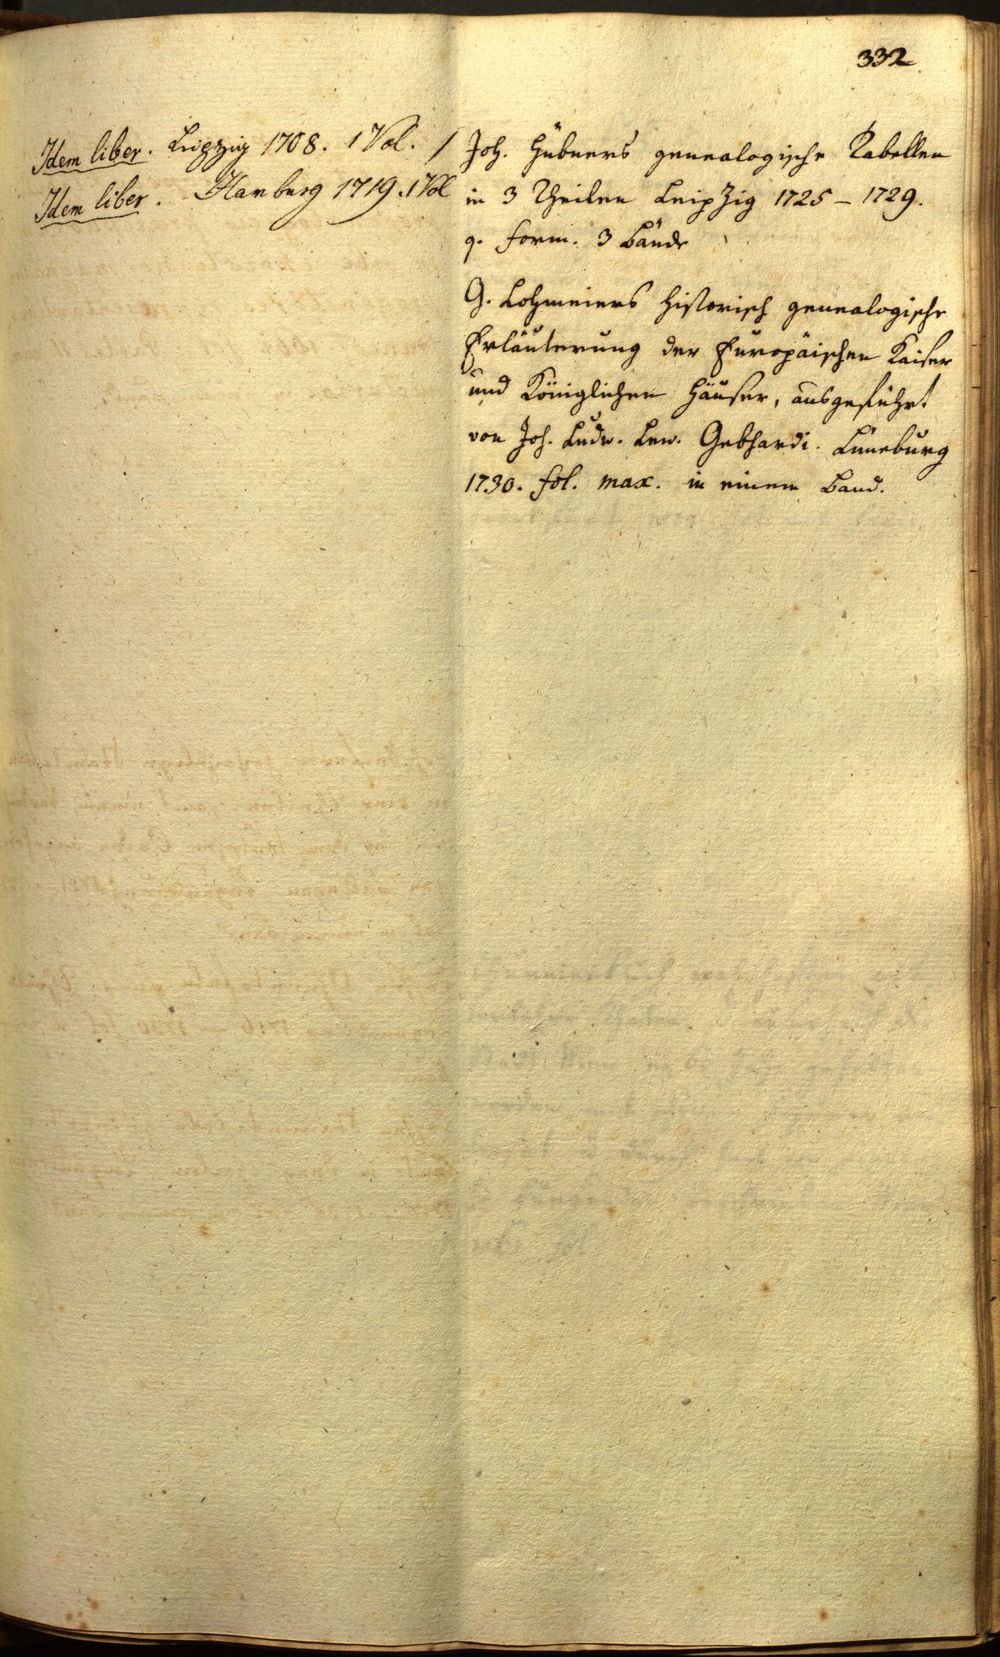 332
Idem liber. Leipzig 1708. 1 Vol. /
Idem liber. Hamburg 1719. 1 Vol
Joh. Hübners genealogische Tabellen
in 3 Theilen Leipzig 1725 – 1729.
q. form. 3 Bände
G. Lohmeiers historisch genealogische
Erläuterung der Europäischen Kaiser
und Königlichen Häuser, ausgeführt
von Joh. Ludw. Lew. Gebhardi. Lüneburg
1730. fol. max. in einem Band.